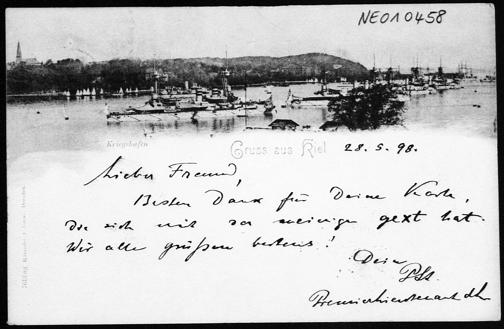 NEO10458
Kriegshafen
Gruss aus Kiel
28. 5. 98.
Lieber Freund,
Besten Dank für Deine Karte,
die sich mit der meinigen gext hat.
Wir alle grüßen bestens!
Dein
Premierlieutenant